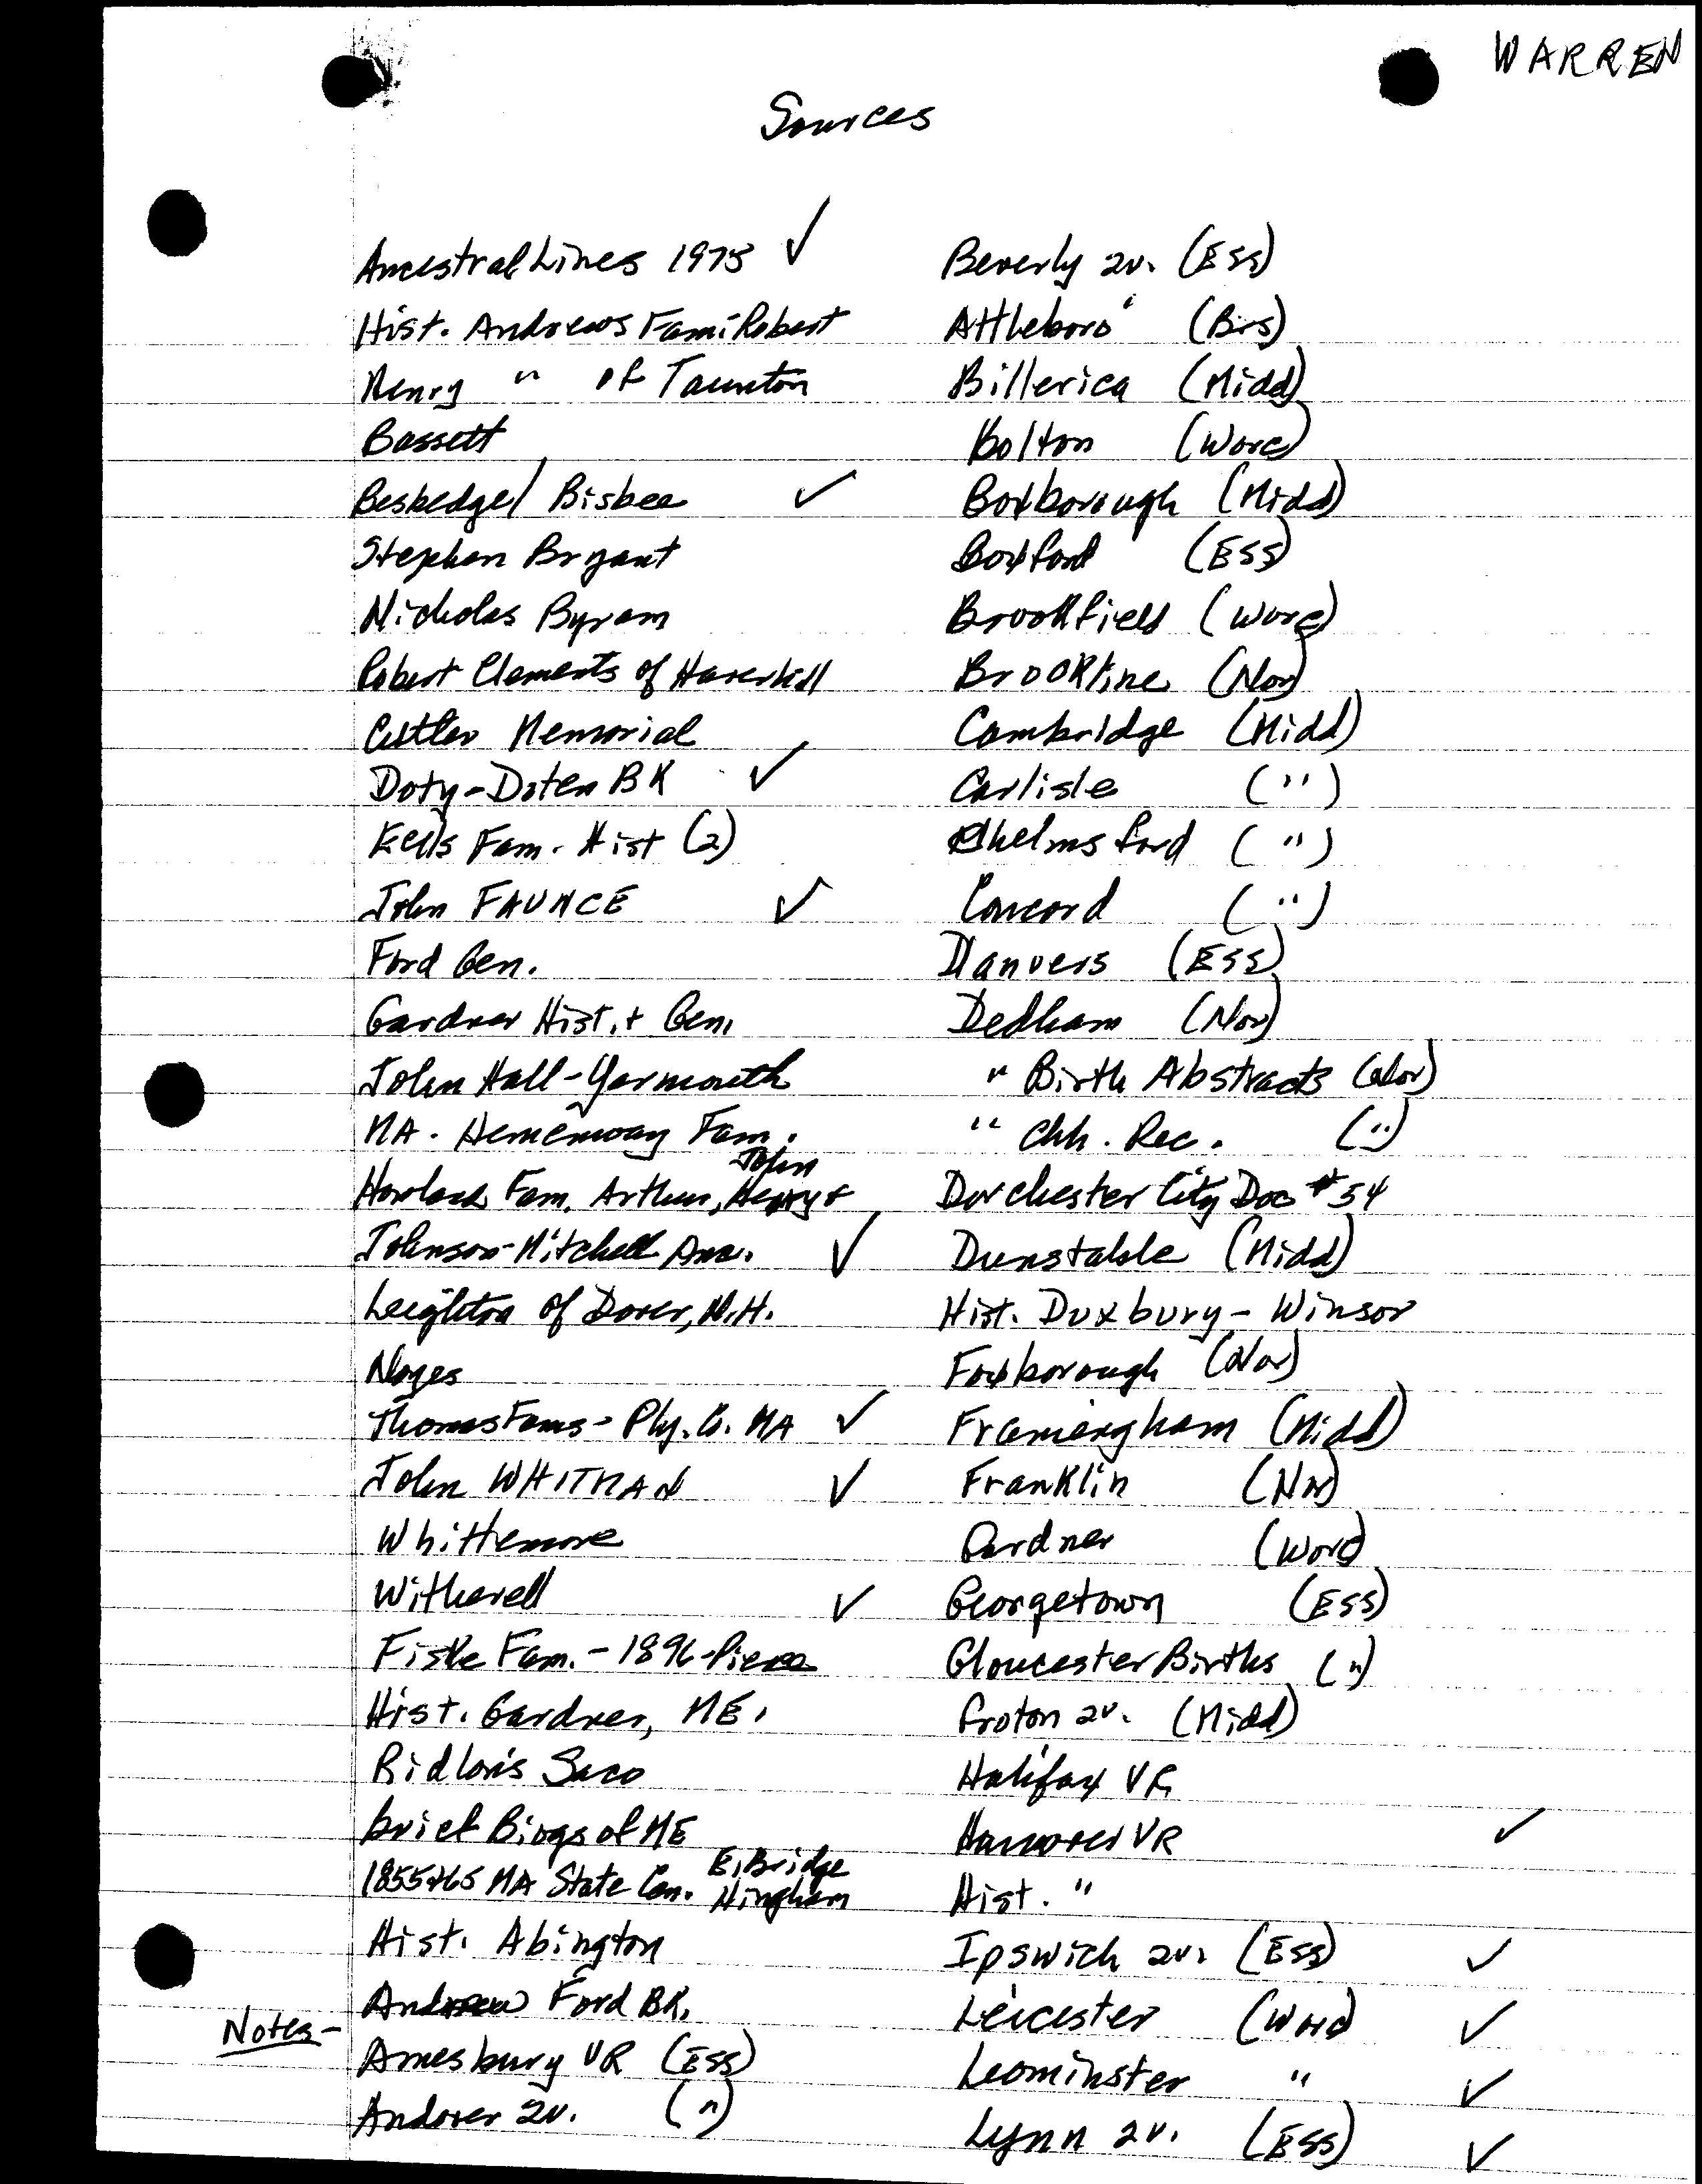 WARREN
Sources
Ancestral Lines 1975 ✓
Hist. Andrews Fam: Robert
Henry " of Taunton
Bassett
Besbedge/ Bisbee ✓
Stephen Bryant
Nicholas Byram
Robert Clements of Haverhill
Cutler Memorial
Doty-Doten BK ✓
Eells Fam. Hist (2)
John FAUNCE ✓
Ford Gen.
Gardner Hist. + Gen.
John Hall-Yarmouth
MA. Hemenway Fam.
John
Howland Fam. Arthur, Henry +
Johnson-Mitchell Anc. ✓
Leighton of Dover, N.H.
Noyes
Thomas Fams - Ply. Co. MA ✓
John WHITMAN ✓
Whittemore
Witherell ✓
Fiske Fam. - 1896 - Pierce
Hist. Gardner, ME.
Ridlon's Saco
brief Biogs of ME
1855+65 MA State Cen. E. Bridge
Hingham
Hist. Abington
Andrew Ford BK.
Notes-
Amesbury VR (Ess)
Andover 2v. (")
Beverly 2v. (Ess)
Attleboro (Brs)
Billerica (Midd)
Bolton (Worc)
Boxborough (Midd)
Boxford (ESS)
Brookfield (Worc)
Brookline (Nor)
Cambridge (Midd)
Carlisle (")
Chelmsford (")
Concord (")
Danvers (ESS)
Dedham (Nor)
" Birth Abstracts (Nor)
" Chh. Rec. (")
Dorchester City Doc #54
Dunstable (Midd)
Hist. Duxbury - Winsor
Foxborough (Nor)
Framingham (Midd)
Franklin (Nor)
Gardner (Worc)
Georgetown (ESS)
Gloucester Births (")
Groton 2v. (Midd)
Halifax VR
Hanover VR ✓
Hist. "
Ipswich 2v. (Ess) ✓
Leicester (Worc) ✓
Leominster " ✓
Lynn 2v. (ESS) ✓